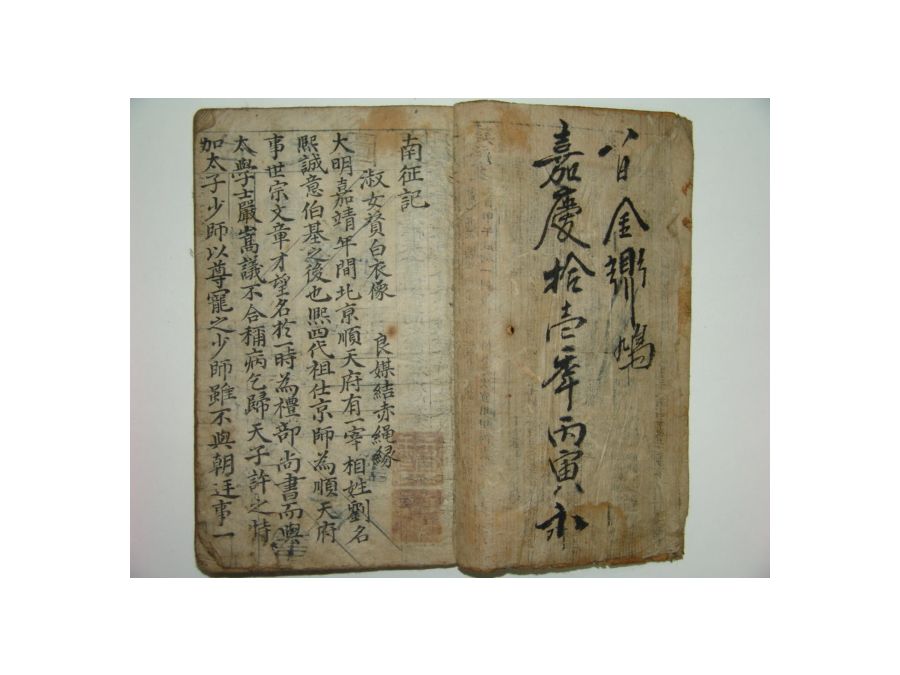 八日金鳩
嘉慶拾壹年丙寅永
南征記
淑女贊白衣像 良媒結赤繩縁
大明嘉靖年間北京順天府有一宰相姓劉名
熙誠意伯基之後也熙四代祖仕京師為順天府
事世宗文章才望名於一時為禮部尚書而與
太學士嚴嵩議不合稱病乞歸天子許之特
加太子少師以尊寵之少師雖不與朝廷事一